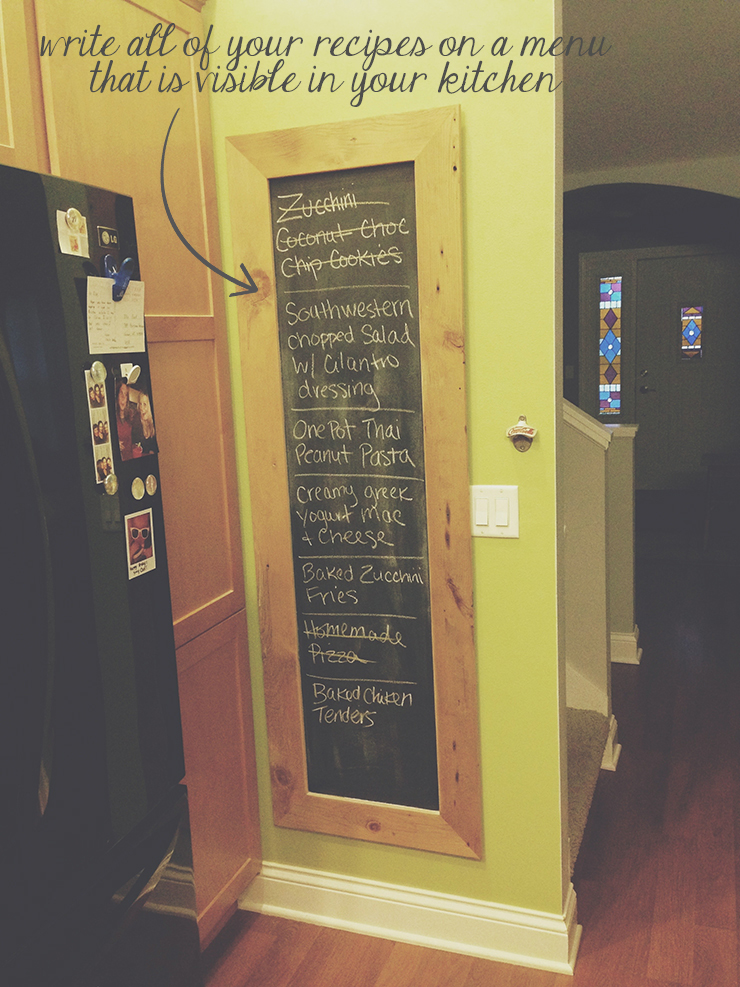 write all of your recipes on a menu
that is visible in your kitchen
LG
Zucchini
Coconut Choc
Chip Cookies
Southwestern
chopped Salad
w/ Cilantro
dressing
One Pot Thai
Peanut Pasta
creamy greek
Yogurt mac
& Cheese
Baked Zucchini
Fries
Homemade
Pizza
Baked Chicken
Tenders